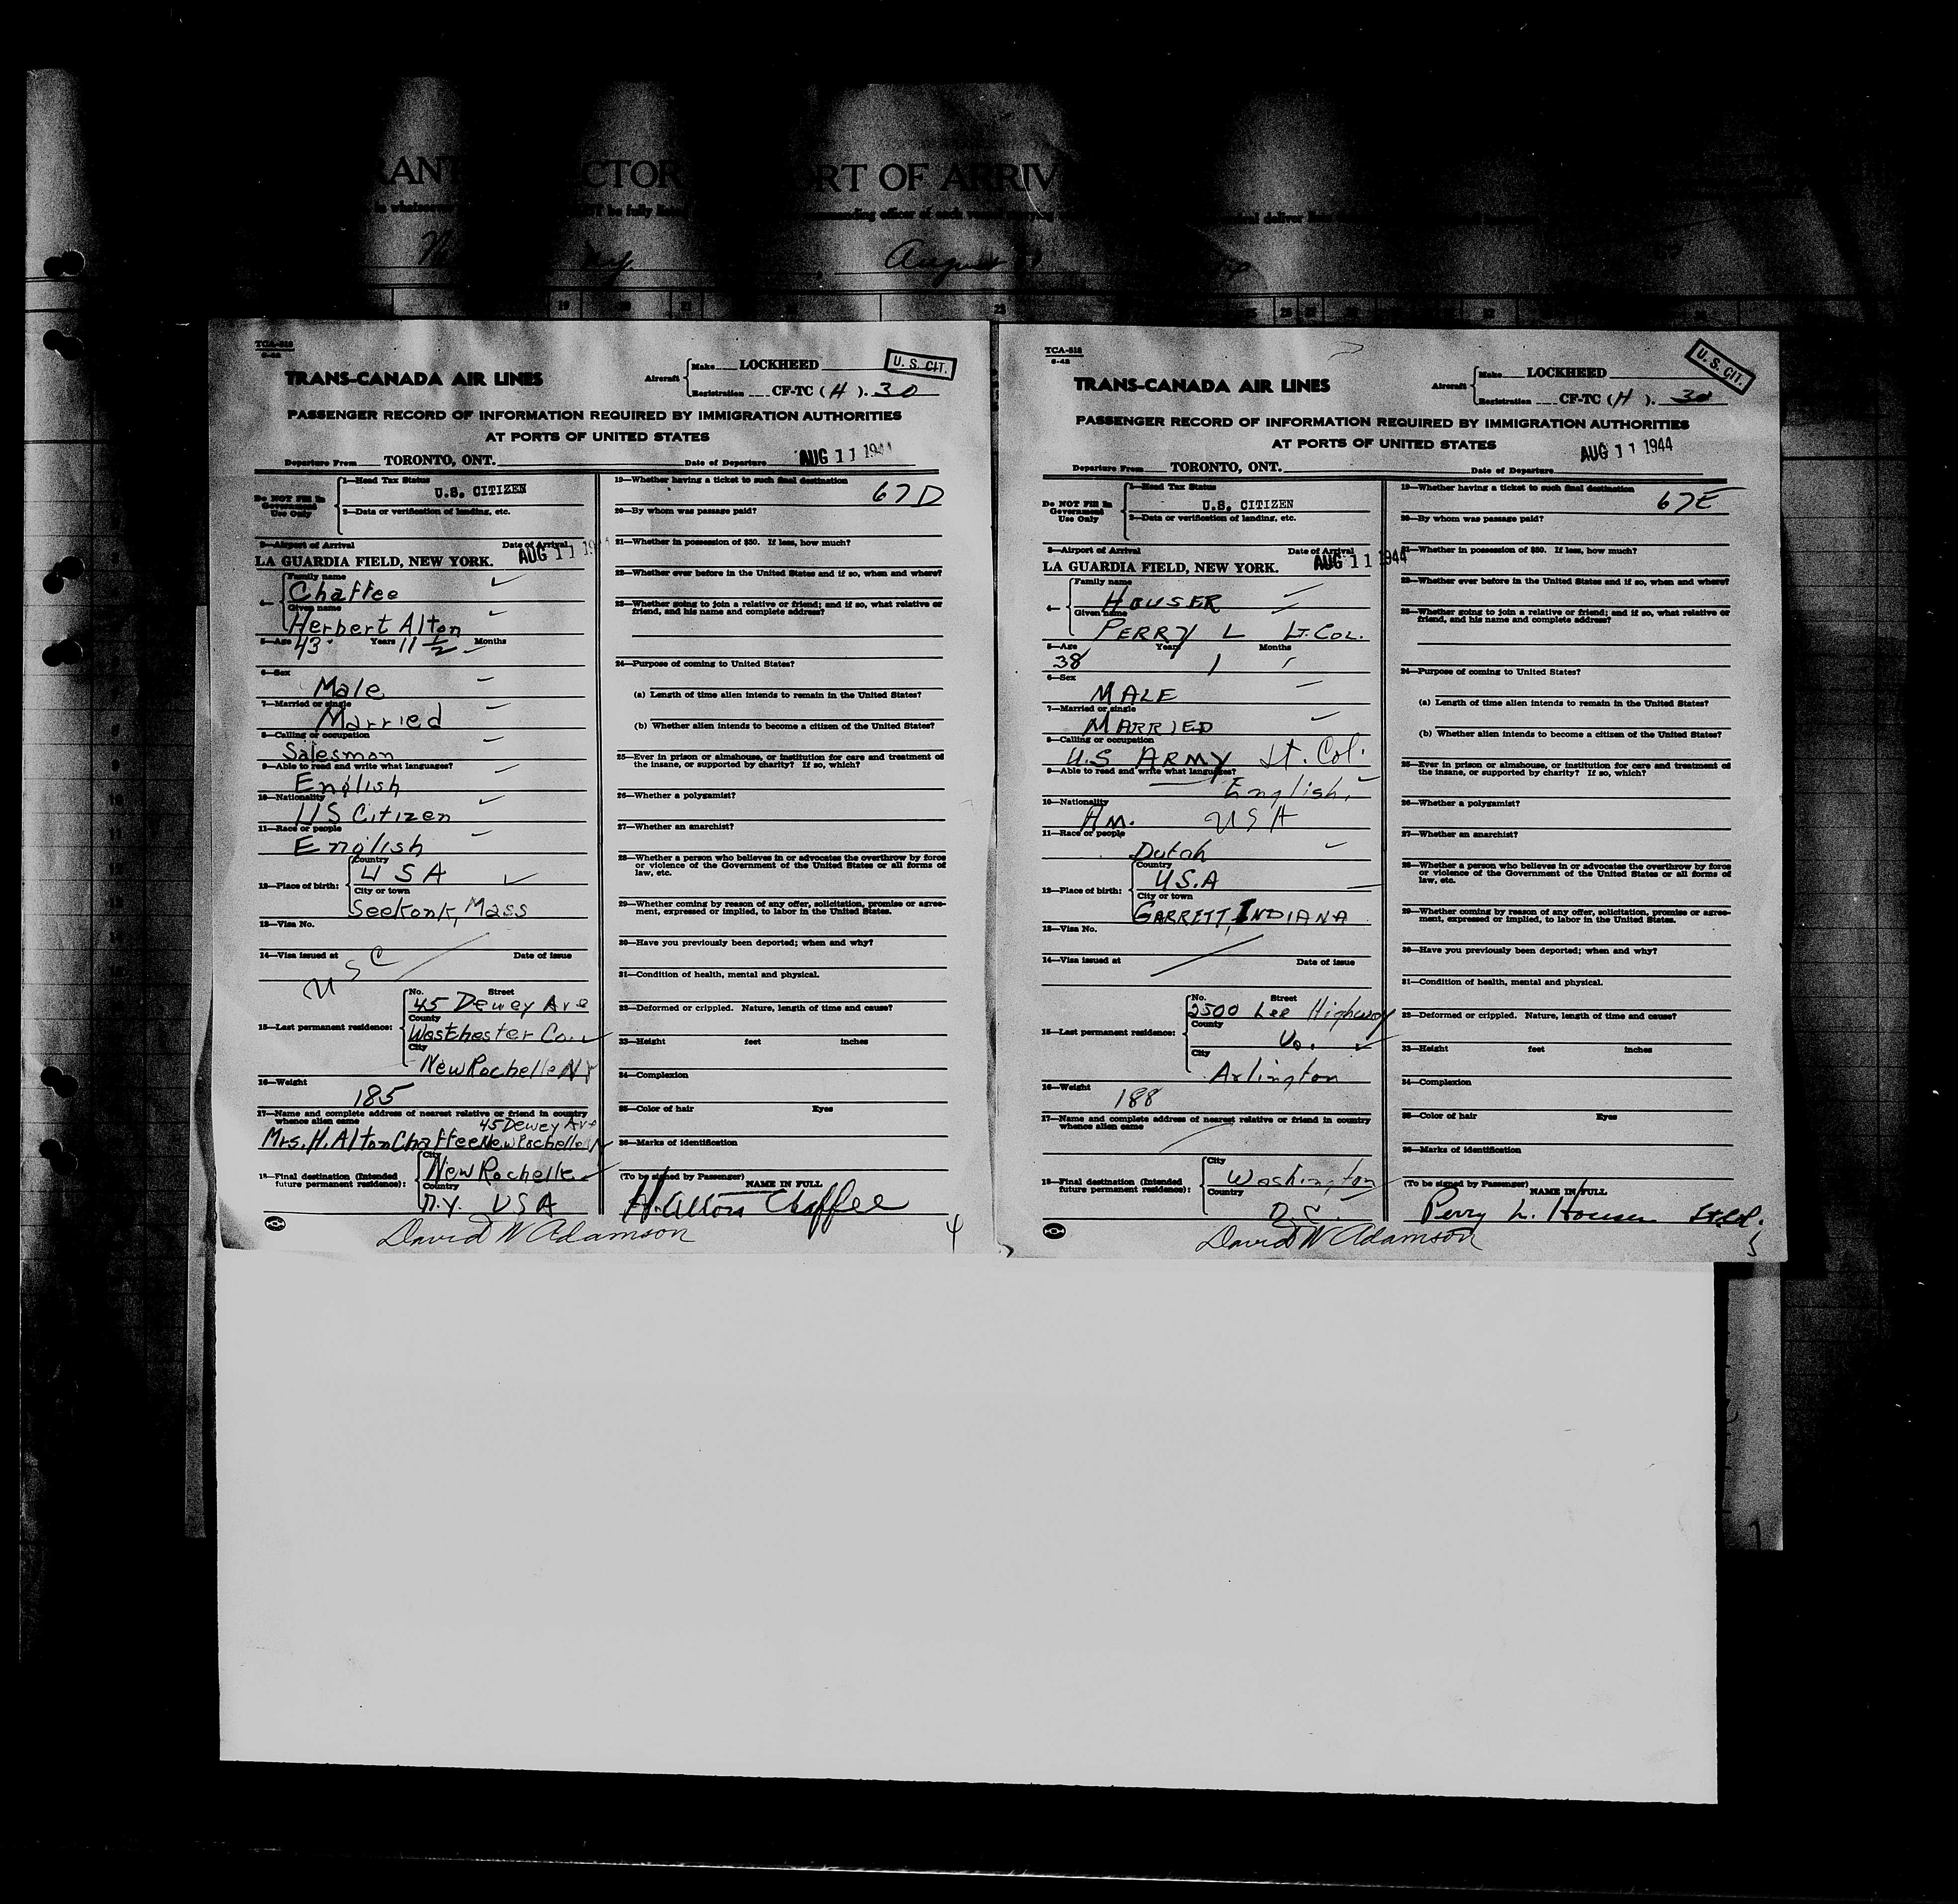 ORT OF ARRIV
August
TCA-518
6-42
TRANS-CANADA AIR LINES
Aircraft
Make LOCKHEED
Registration CF-TC (H). 30
U. S. CIT.
PASSENGER RECORD OF INFORMATION REQUIRED BY IMMIGRATION AUTHORITIES
AT PORTS OF UNITED STATES
Departure From TORONTO, ONT. Date of Departure AUG 11 1944
Do NOT Fill in
Government
Use Only
1—Head Tax Status
U.S. CITIZEN
2—Data or verification of landing, etc.
3—Airport of Arrival Date of Arrival
LA GUARDIA FIELD, NEW YORK. AUG 11 194
4—
Family name
Chaffee
Given name
Herbert Alton
5—Age 43 Years 11 1/2 Months
6—Sex
Male
7—Married or single
Married
8—Calling or occupation
Salesman
9—Able to read and write what languages?
English
10—Nationality
US Citizen
11—Race or people
English
12—Place of birth:
Country
U S A
City or town
Seekonk, Mass
13—Visa No.
14—Visa issued at Date of issue
U S C
15—Last permanent residence:
No. Street
45 Dewey Ave
County
Westchester Co.
City
New Rochelle NY
16—Weight
185
17—Name and complete address of nearest relative or friend in country
whence alien came 45 Dewey Ave
Mrs. H. Alton Chaffee New Rochelle N
18—Final destination (Intended
future permanent residence):
City
New Rochelle
Country
N.Y. USA
19—Whether having a ticket to such final destination
67D
20—By whom was passage paid?
21—Whether in possession of $50. If less, how much?
22—Whether ever before in the United States and if so, when and where?
23—Whether going to join a relative or friend; and if so, what relative or
friend, and his name and complete address?
24—Purpose of coming to United States?
(a) Length of time alien intends to remain in the United States?
(b) Whether alien intends to become a citizen of the United States?
25—Ever in prison or almshouse, or institution for care and treatment of
the insane, or supported by charity? If so, which?
26—Whether a polygamist?
27—Whether an anarchist?
28—Whether a person who believes in or advocates the overthrow by force
or violence of the Government of the United States or all forms of
law, etc.
29—Whether coming by reason of any offer, solicitation, promise or agree-
ment, expressed or implied, to labor in the United States.
30—Have you previously been deported; when and why?
31—Condition of health, mental and physical.
32—Deformed or crippled. Nature, length of time and cause?
33—Height feet inches
34—Complexion
35—Color of hair Eyes
36—Marks of identification
(To be signed by Passenger)
NAME IN FULL
H. Alton Chaffee
David W Adamson
4
TCA-518
6-42
TRANS-CANADA AIR LINES
Aircraft
Make LOCKHEED
Registration CF-TC (H). 30
U. S. CIT.
PASSENGER RECORD OF INFORMATION REQUIRED BY IMMIGRATION AUTHORITIES
AT PORTS OF UNITED STATES
Departure From TORONTO, ONT. Date of Departure AUG 11 1944
Do NOT Fill in
Government
Use Only
1—Head Tax Status
U.S. CITIZEN
2—Data or verification of landing, etc.
3—Airport of Arrival Date of Arrival
LA GUARDIA FIELD, NEW YORK. AUG 11 1944
4—
Family name
HOUSER
Given name
PERRY L LT. COL.
5—Age Years Months
38 1
6—Sex
MALE
7—Married or single
MARRIED
8—Calling or occupation
U.S ARMY Lt. Col.
9—Able to read and write what languages?
English.
10—Nationality
Am. USA
11—Race or people
Dutch
12—Place of birth:
Country
U.S.A
City or town
GARRITT, INDIANA
13—Visa No.
14—Visa issued at Date of issue
15—Last permanent residence:
No. Street
2500 Lee Highway
County
Va.
City
Arlington
16—Weight
188
17—Name and complete address of nearest relative or friend in country
whence alien came
18—Final destination (Intended
future permanent residence):
City
Washington
Country
D.C.
19—Whether having a ticket to such final destination
67E
20—By whom was passage paid?
21—Whether in possession of $50. If less, how much?
22—Whether ever before in the United States and if so, when and where?
23—Whether going to join a relative or friend; and if so, what relative or
friend, and his name and complete address?
24—Purpose of coming to United States?
(a) Length of time alien intends to remain in the United States?
(b) Whether alien intends to become a citizen of the United States?
25—Ever in prison or almshouse, or institution for care and treatment of
the insane, or supported by charity? If so, which?
26—Whether a polygamist?
27—Whether an anarchist?
28—Whether a person who believes in or advocates the overthrow by force
or violence of the Government of the United States or all forms of
law, etc.
29—Whether coming by reason of any offer, solicitation, promise or agree-
ment, expressed or implied, to labor in the United States.
30—Have you previously been deported; when and why?
31—Condition of health, mental and physical.
32—Deformed or crippled. Nature, length of time and cause?
33—Height feet inches
34—Complexion
35—Color of hair Eyes
36—Marks of identification
(To be signed by Passenger)
NAME IN FULL
Perry L. Houser Lt Col.
David W Adamson
5